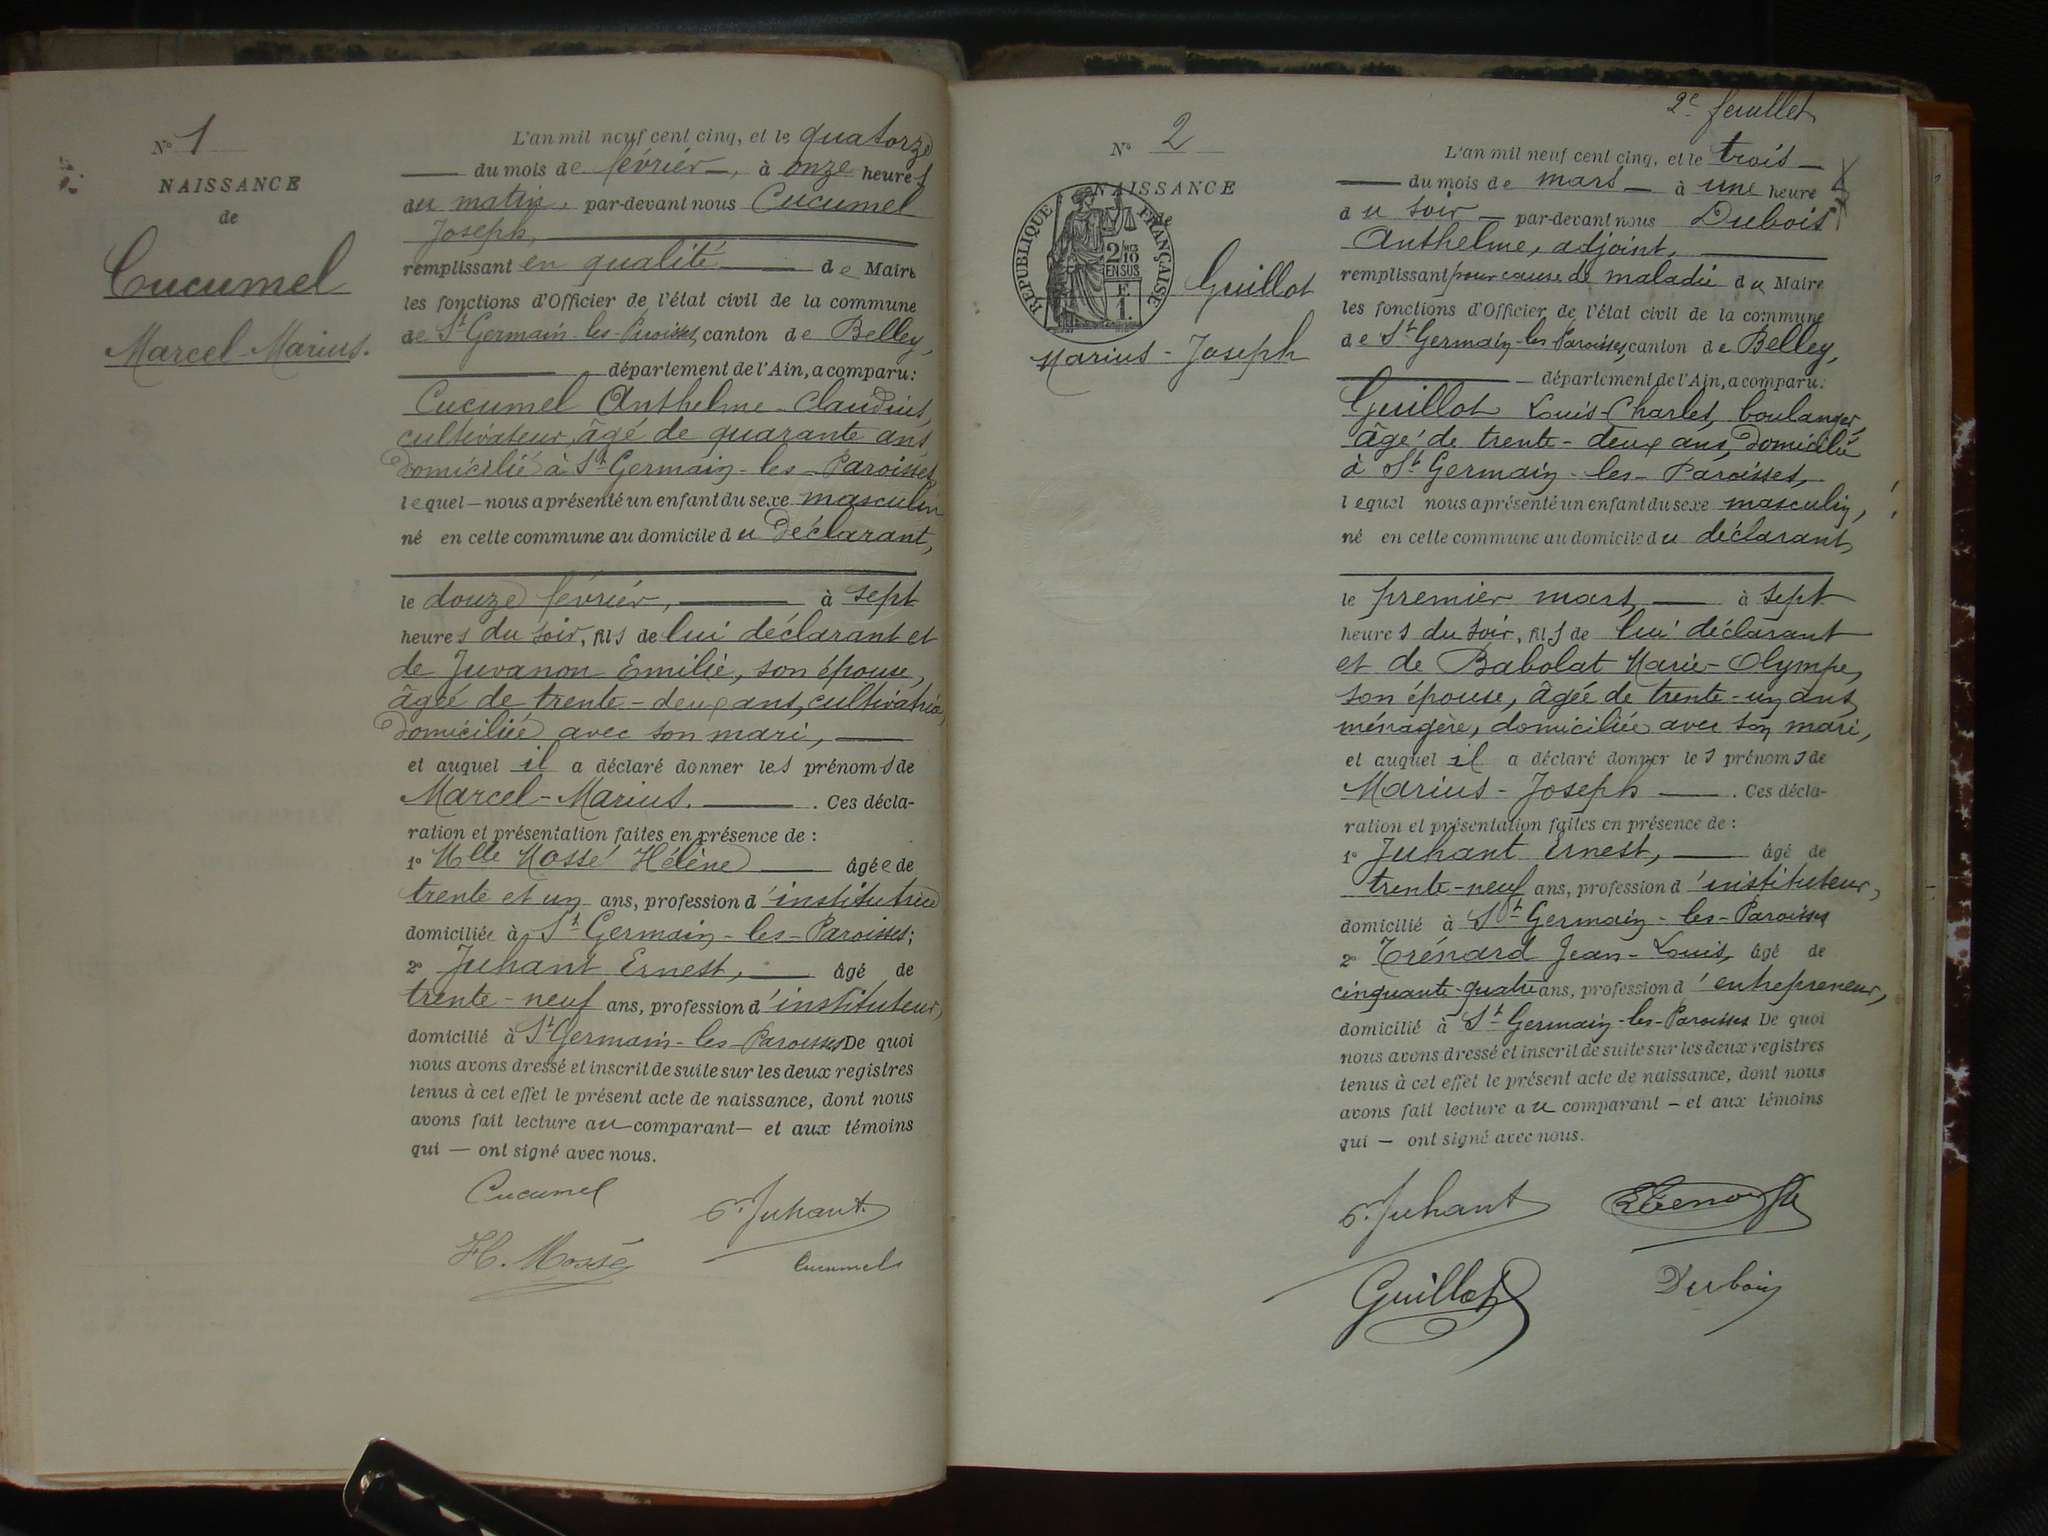 N° 1
NAISSANCE
de
Cucumel
Marcel-Marius.
L'an mil neuf cent cinq, et le quatorze
du mois de février, à onze heures
du matin, par-devant nous Cucumel
Joseph,
remplissant en qualité de Maire
les fonctions d'Officier de l'état civil de la commune
de St Germain-les-Paroisses, canton de Belley,
département de l'Ain, a comparu:
Cucumel Anthelme-Claudius,
cultivateur, âgé de quarante ans
domicilié à St Germain-les-Paroisses,
lequel nous a présenté un enfant du sexe masculin
né en cette commune au domicile du déclarant,
le douze février, à sept
heures du soir, fils de lui déclarant et
de Juvanon Emilie, son épouse,
âgée de trente-deux ans, cultivatrice,
domiciliée avec son mari,
et auquel il a déclaré donner les prénoms de
Marcel-Marius. Ces décla-
ration et présentation faites en présence de :
1° Mlle Mossé Hélène âgée de
trente et un ans, profession d'institutrice
domiciliée à St Germain-les-Paroisses;
2° Juhant Ernest, âgé de
trente-neuf ans, profession d'instituteur,
domicilié à St Germain-les-Paroisses De quoi
nous avons dressé et inscrit de suite sur les deux registres
tenus à cet effet le présent acte de naissance, dont nous
avons fait lecture au comparant — et aux témoins
qui — ont signé avec nous.
Cucumel
E. Juhant
H. Mossé
Cucumel
2e feuillet
N° 2
NAISSANCE
de
RÉPUBLIQUE FRANÇAISE
2/10
EN SUS
F
1.
Guillot
Marius-Joseph
L'an mil neuf cent cinq, et le trois
du mois de mars à une heure
du soir par-devant nous Dubois
Anthelme, adjoint,
remplissant pour cause de maladie du Maire
les fonctions d'Officier de l'état civil de la commune
de St Germain-les-Paroisses, canton de Belley,
département de l'Ain, a comparu:
Guillot Louis-Charles, boulanger,
âgé de trente-deux ans, domicilié
à St Germain-les-Paroisses,
lequel nous a présenté un enfant du sexe masculin,
né en cette commune au domicile du déclarant,
le premier mars à sept
heures du soir, fils de lui déclarant
et de Babolat Marie-Olympe,
son épouse, âgée de trente-un ans,
ménagère, domiciliée avec son mari,
et auquel il a déclaré donner les prénoms de
Marius-Joseph. Ces décla-
ration et présentation faites en présence de :
1° Juhant Ernest, âgé de
trente-neuf ans, profession d'instituteur,
domicilié à St Germain-les-Paroisses
2° Trénard Jean-Louis, âgé de
cinquante-quatre ans, profession d'entrepreneur,
domicilié à St Germain-les-Paroisses De quoi
nous avons dressé et inscrit de suite sur les deux registres
tenus à cet effet le présent acte de naissance, dont nous
avons fait lecture au comparant — et aux témoins
qui — ont signé avec nous.
E. Juhant
Guillot
Dubois